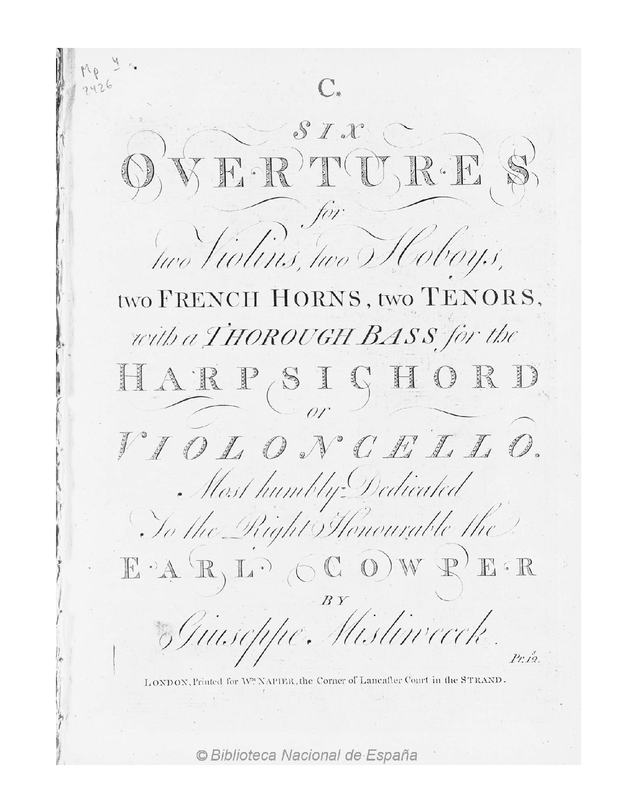 Mp y
2426
C.
SIX
OVERTURES
for
two Violins, two Hoboys,
two FRENCH HORNS, two TENORS,
with a THOROUGH BASS for the
HARPSICHORD
or
VIOLONCELLO.
Most humbly Dedicated
To the Right Honourable the
EARL COWPER
BY
Giuseppe Misliwecek
Pr. 12.s
LONDON, Printed for Wm. NAPIER, the Corner of Lancaſter Court in the STRAND.
© Biblioteca Nacional de España